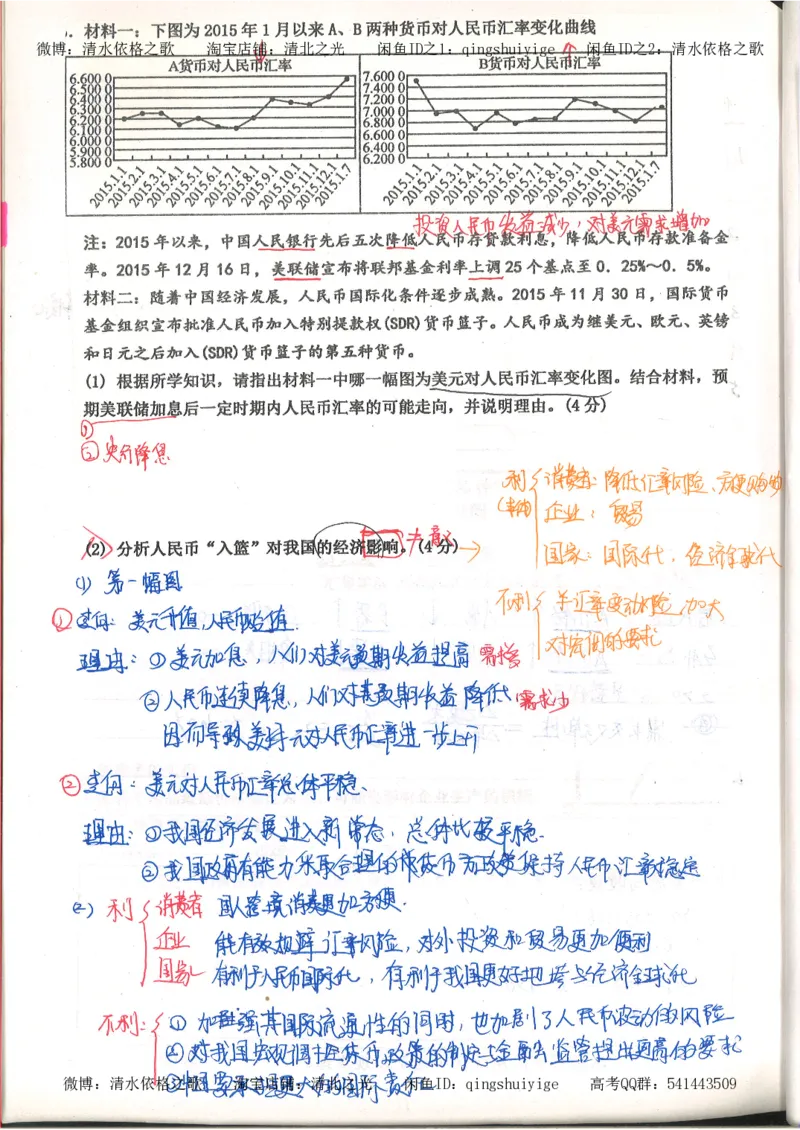 材料一：下图为 2015 年 1 月以来 A、B 两种货币对人民币汇率变化曲线
微博：清水依格之歌 淘宝店铺：清北之光 闲鱼ID之1：qingshuiyige 闲鱼ID之2：清水依格之歌
A货币对人民币汇率
6.600 0
6.500 0
6.400 0
6.300 0
6.200 0
6.100 0
6.000 0
5.900 0
5.800 0
2015.1.1 2015.2.1 2015.3.1 2015.4.1 2015.5.1 2015.6.1 2015.7.1 2015.8.1 2015.9.1 2015.10.1 2015.11.1 2015.12.1 2015.1.7
B货币对人民币汇率
7.600 0
7.400 0
7.200 0
7.000 0
6.800 0
6.600 0
6.400 0
6.200 0
2015.1.1 2015.2.1 2015.3.1 2015.4.1 2015.5.1 2015.6.1 2015.7.1 2015.8.1 2015.9.1 2015.10.1 2015.11.1 2015.12.1 2015.1.7
投资人民币收益减少，对美元需求增加
注：2015 年以来，中国人民银行先后五次降低人民币存贷款利息，降低人民币存款准备金
率。2015 年 12 月 16 日，美联储宣布将联邦基金利率上调 25 个基点至 0．25%～0．5%。
材料二：随着中国经济发展，人民币国际化条件逐步成熟。2015 年 11 月 30 日，国际货币
基金组织宣布批准人民币加入特别提款权(SDR)货币篮子。人民币成为继美元、欧元、英镑
和日元之后加入(SDR)货币篮子的第五种货币。
(1) 根据所学知识，请指出材料一中哪一幅图为美元对人民币汇率变化图。结合材料，预
期美联储加息后一定时期内人民币汇率的可能走向，并说明理由。(4 分)
①
② 央行降息
利 消费者：降低汇率风险、方便购物
企业：贸易
国家：国际化，经济全球化
(2) 分析人民币“入篮”对我国的经济影响。(4 分)
不利 羊汇率变动风险，加大
对宏观的要求
(1) 第一幅图
① 走向：美元升值，人民币贬值.
理由：①美元加息，人们对美元预期收益提高 需求增
②人民币连续降息，人们对其预期收益降低 需求少
因而导致美元对人民币汇率进一步上升
② 走向：美元对人民币汇率总体平稳.
理由：①我国经济发展进入新常态，总体比较平稳.
②我国政府有能力采取合理的货币政策保持人民币汇率稳定
(2) 利 消费者 国人签境消费更加方便.
企业 能有效规避汇率风险，对外投资和贸易更加便利
国家 有利于人民币国际化，有利于我国更好地参与经济全球化
不利： ① 加强其国际流通性的同时，也加剧了人民币波动的风险
② 对我国宏观调控货币政策的制定与金融监管提出更高的要求
微博：清水依格之歌 淘宝店铺：清北之光 闲鱼ID：qingshuiyige 高考QQ群：541443509